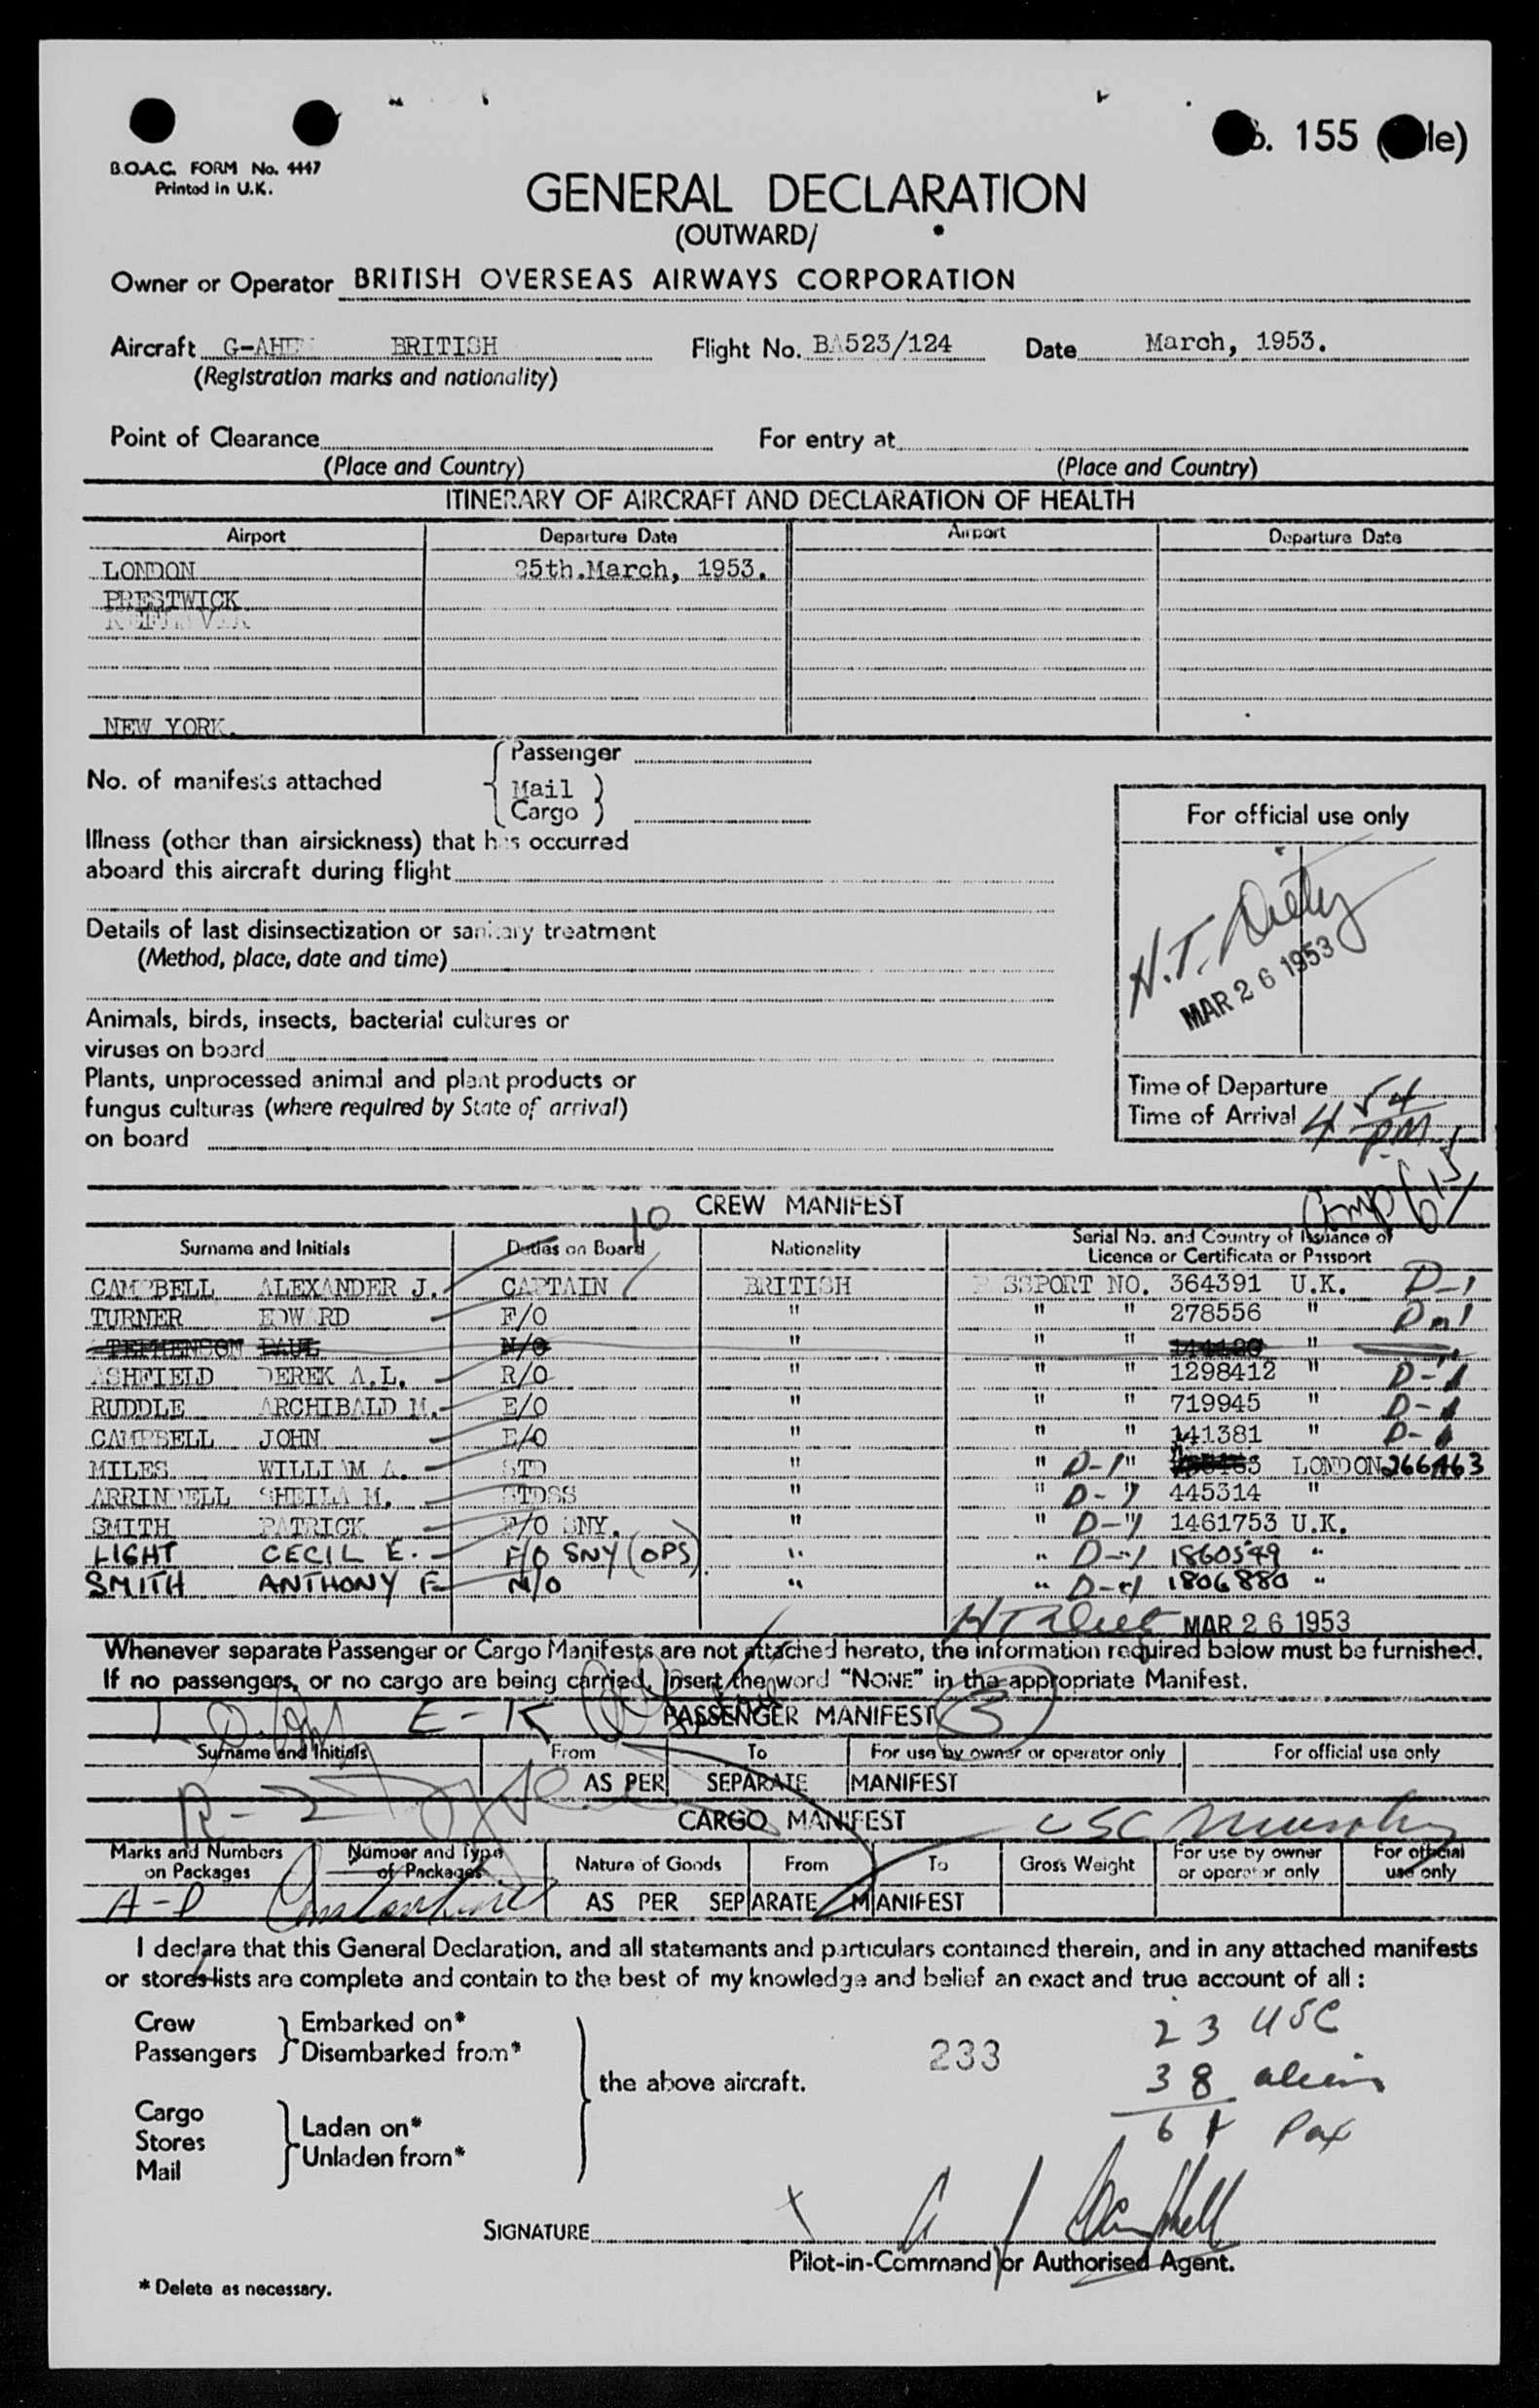 B.O.A.C. FORM No. 4447
Printed in U.K.
155
GENERAL DECLARATION
(OUTWARD/ *
Owner or Operator BRITISH OVERSEAS AIRWAYS CORPORATION
Aircraft BRITISH Flight No. BA523/124 Date March, 1953.
(Registration marks and nationality)
Point of Clearance For entry at
(Place and Country) (Place and Country)
ITINERARY OF AIRCRAFT AND DECLARATION OF HEALTH
Airport Departure Date Airport Departure Date
LONDON 25th.March, 1953.
PRESTWICK
NEW YORK.
No. of manifests attached
Passenger
Mail
Cargo
Illness (other than airsickness) that has occurred
aboard this aircraft during flight
Details of last disinsectization or sanitary treatment
(Method, place, date and time)
Animals, birds, insects, bacterial cultures or
viruses on board
Plants, unprocessed animal and plant products or
fungus cultures (where required by State of arrival)
on board
For official use only
H.T.
MAR 26 1953
Time of Departure
Time of Arrival 4 54 PM
CREW MANIFEST
10
Surname and Initials Duties on Board Nationality Serial No. and Country of Issuance of
Licence or Certificate or Passport
CAMPBELL ALEXANDER J. CAPTAIN BRITISH PASSPORT NO. 364391 U.K. D-1
TURNER EDWARD F/O " " " 278556 "
STEPHENSON PAUL N/O " " " "
ASHFIELD DEREK A.L. R/O " " " 1298412 " D-1
RUDDLE ARCHIBALD M. E/O " " " 719945 " D-1
CAMPBELL JOHN E/O " " " 141381 " D-1
MILES WILLIAM A. STD " " D-1 " LONDON 266463
ARRINDELL SHEILA M. STDSS " " D-1 445314 "
SMITH PATRICK F/O SNY. " " D-1 1461753 U.K.
LIGHT CECIL E. F/O SNY (OPS) " " D-1 1860549 "
SMITH ANTHONY F N/O " " D-1 1806880 "
MAR 26 1953
Whenever separate Passenger or Cargo Manifests are not attached hereto, the information required below must be furnished.
If no passengers, or no cargo are being carried, insert the word "NONE" in the appropriate Manifest.
E - K PASSENGER MANIFEST 3
Surname and Initials From To For use by owner or operator only For official use only
AS PER SEPARATE MANIFEST
R - Z
CARGO MANIFEST USC Murphy
Marks and Numbers on Packages Number and Type of Packages Nature of Goods From To Gross Weight For use by owner or operator only For official use only
A-D AS PER SEPARATE MANIFEST
I declare that this General Declaration, and all statements and particulars contained therein, and in any attached manifests
or stores lists are complete and contain to the best of my knowledge and belief an exact and true account of all :
Crew
Passengers
Embarked on*
Disembarked from*
Cargo
Stores
Mail
Laden on*
Unladen from*
the above aircraft.
233
23 USC
38 alien
61 Pax
SIGNATURE A J Campbell
Pilot-in-Command or Authorised Agent.
* Delete as necessary.